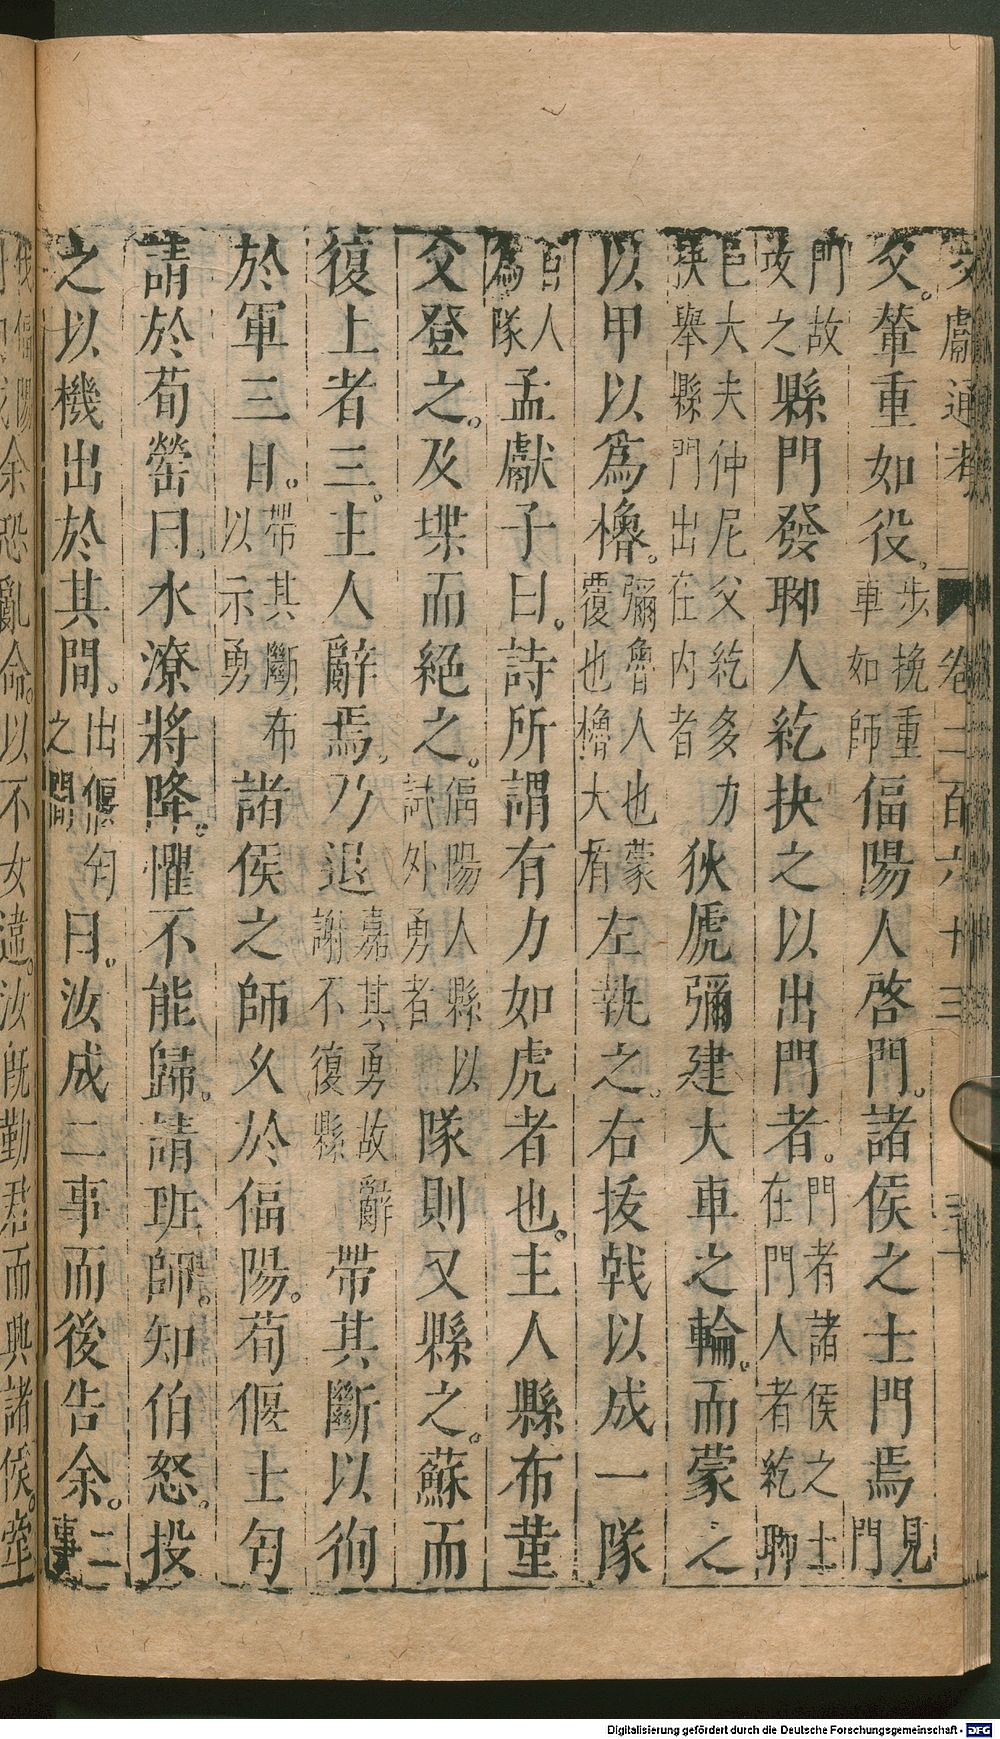 文獻通考 卷二百六十三
父。輦重如役。步挽重車如師偪陽人啓門。諸侯之士門焉見門
門故攻之縣門發聊人紇抉之以出門者。門者諸侯之士在門人者紇聊
邑大夫仲尼父紇多力抉舉縣門出在内者狄虒彌建大車之輪。而蒙之
以甲以爲櫓。彌魯人也蒙覆也櫓大盾左執之。右拔戟以成一隊
百人爲隊孟獻子曰。詩所謂有力如虎者也。主人縣布堇
父登之。及堞而絕之。偪陽人縣以試外勇者隊則又縣之。蘇而
復上者三。主人辭焉。乃退嘉其勇故辭謝不復縣帶其斷以徇
於軍三日。帶其斷布以示勇諸侯之師久於偪陽。荀偃士匄
請於荀罃曰。水潦將降。懼不能歸。請班師。知伯怒。投
之以機出於其間。出偃匄之間曰。汝成二事而後告余。二事
伐偪陽余恐亂命。以不女違。汝旣勤君而興諸侯。牽
Digitalisierung gefördert durch die Deutsche Forschungsgemeinschaft - DFG